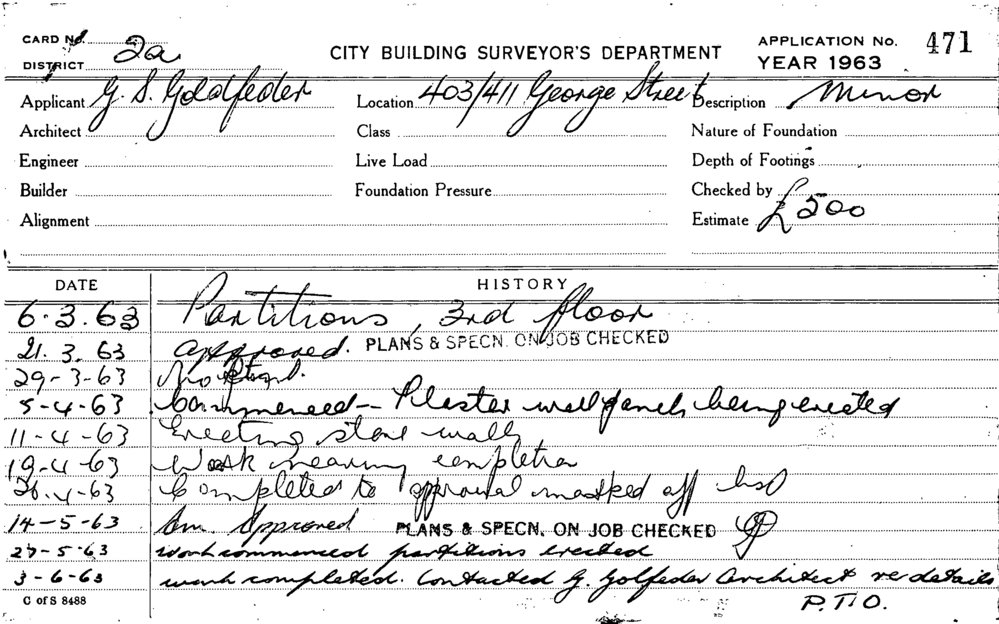 CARD No.
DISTRICT 2a
CITY BUILDING SURVEYOR'S DEPARTMENT
APPLICATION No. 471
YEAR 1963
Applicant G. S. Goldfeder
Location 403/411 George Street
Description Minor
Architect
Class
Nature of Foundation
Engineer
Live Load
Depth of Footings
Builder
Foundation Pressure
Checked by
Alignment
Estimate £500
DATE HISTORY
6.3.63 Partitions, 3rd floor
21.3.63 Approved. PLANS & SPECN. ON JOB CHECKED
29-3-63 No
5-4-63 Commenced - Plaster wall panels being erected
11-4-63 Erecting stone walls
19-4-63 Work nearing completion
26-4-63 Completed to approval marked off
14-5-63 Am. Approved PLANS & SPECN. ON JOB CHECKED
27-5-63 work commenced partitions erected
3-6-63 work completed. Contacted G. Golfeder Architect re details
C of S 8488
P.T.O.